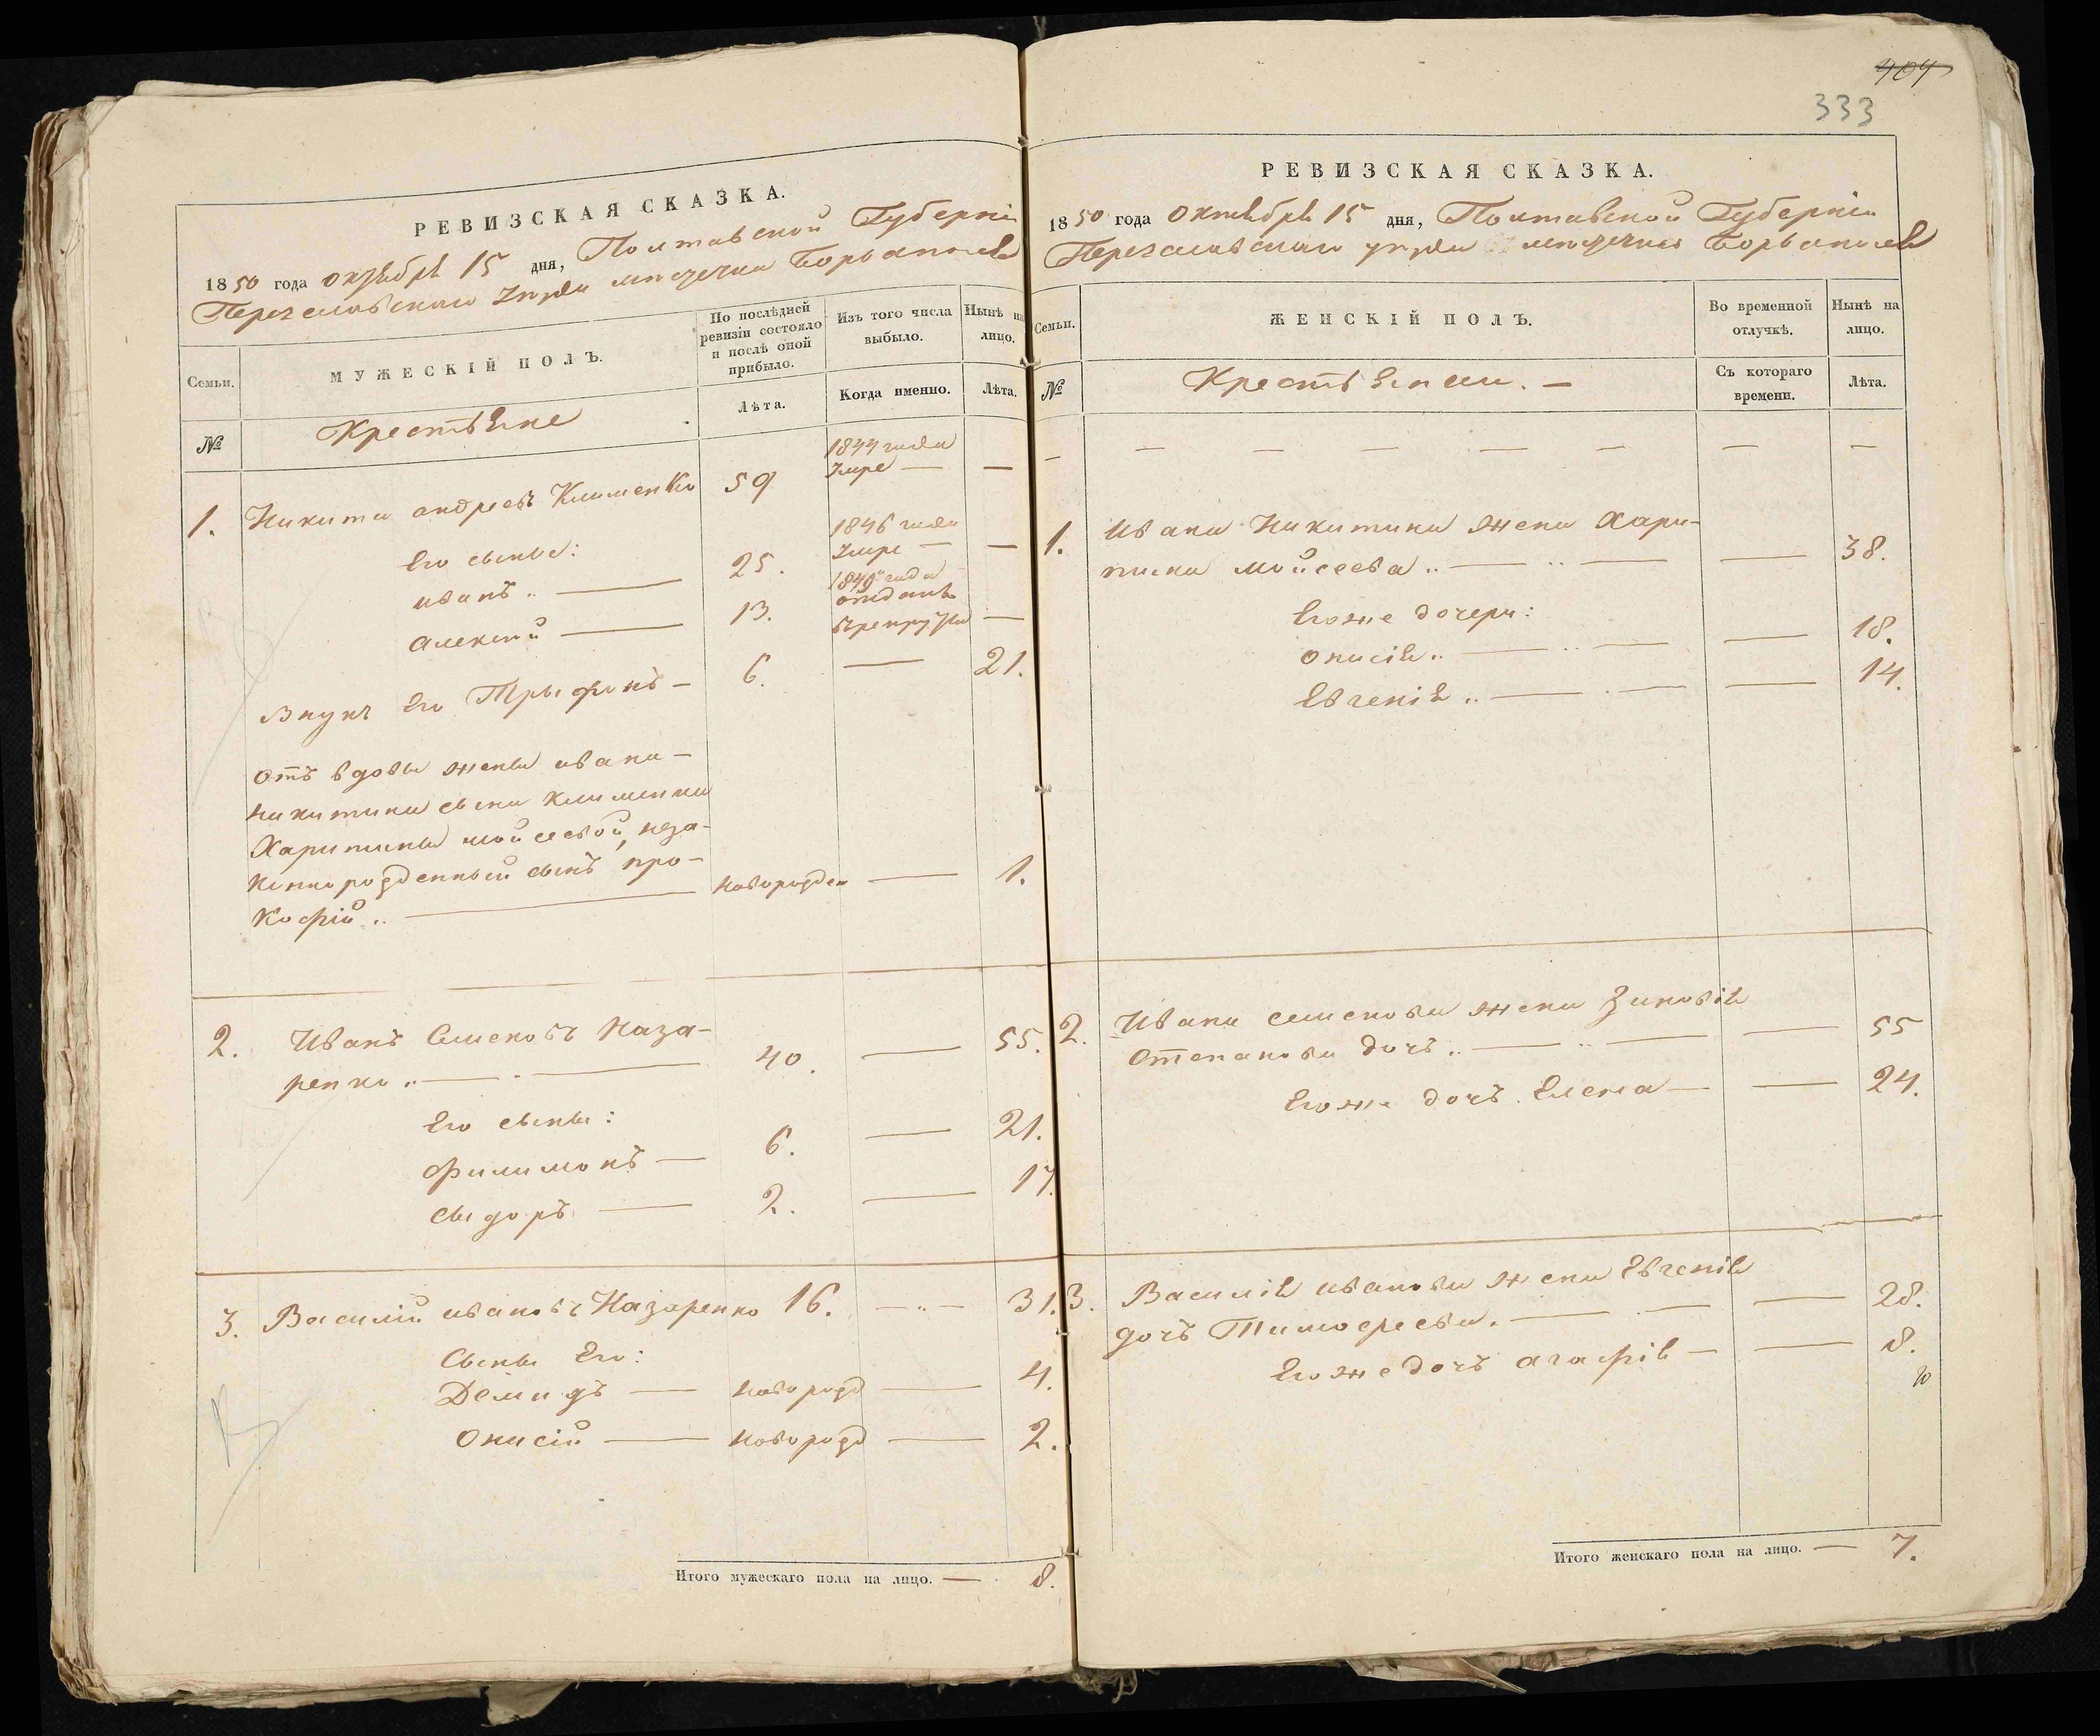 РЕВИЗСКАЯ СКАЗКА.
1850 года октября 15 дня, Полтавской Губерніи
Переяславскаго уезда местечка Борисполя
Семьи.
МУЖЕСКІЙ ПОЛЪ.
По послѣдней ревизіи состояло и послѣ оной прибыло.
Изъ того числа выбыло.
Нынѣ на лицо.
№
Крестьяне
Лѣта.
Когда именно.
Лѣта.
1. Никита андреевъ Клименко 59 1844 года умре — —
Его сыны:
иванъ .. — 25. 1846 года умре — —
алексей — 13. 1849 года отданъ въ рекруты —
Внукъ Его Трыфонъ — 6. — 21.
отъ вдовы жены ивана —
никитина сына клименка
Харитины мойсеевой, неза-
коннорожденный сынъ про-
кофій .. — новорожден — 1.
2. Иванъ Семеновъ Наза-
ренко .. — 40. — 55.
Его сыны:
филимонъ — 6. — 21.
сыдоръ — 2. — 17.
3. Василий ивановъ Назаренко 16. — " — 31.
Сыны Его:
Демидъ — новорожд — 4.
Онисій — новорожд — 2.
Итого мужескаго пола на лицо. — 8.
404
333
РЕВИЗСКАЯ СКАЗКА.
1850 года октября 15 дня, Полтавской Губерніи
Переяславскаго уезда местечка Борисполя
Семьи.
ЖЕНСКІЙ ПОЛЪ.
Во временной отлучкѣ.
Нынѣ на лицо.
№
Крестьянки. —
Съ котораго времени.
Лѣта.
— — — — — — — —
1. Ивана Никитина жена Хари-
тина мойсеева .. — .. — — 38.
Егоже дочери:
онисія .. — .. — — 18.
Евгенія .. — . — — 14.
2. Ивана семенова жена Зиновія
Степанова дочь .. — .. — — 55
Егоже дочь Елена — — 24.
3. Василія иванова жена Евгенія
дочь Тимофеева. — . — — 28.
Егоже дочь агафія — — 8.
Итого женскаго пола на лицо. — 7.